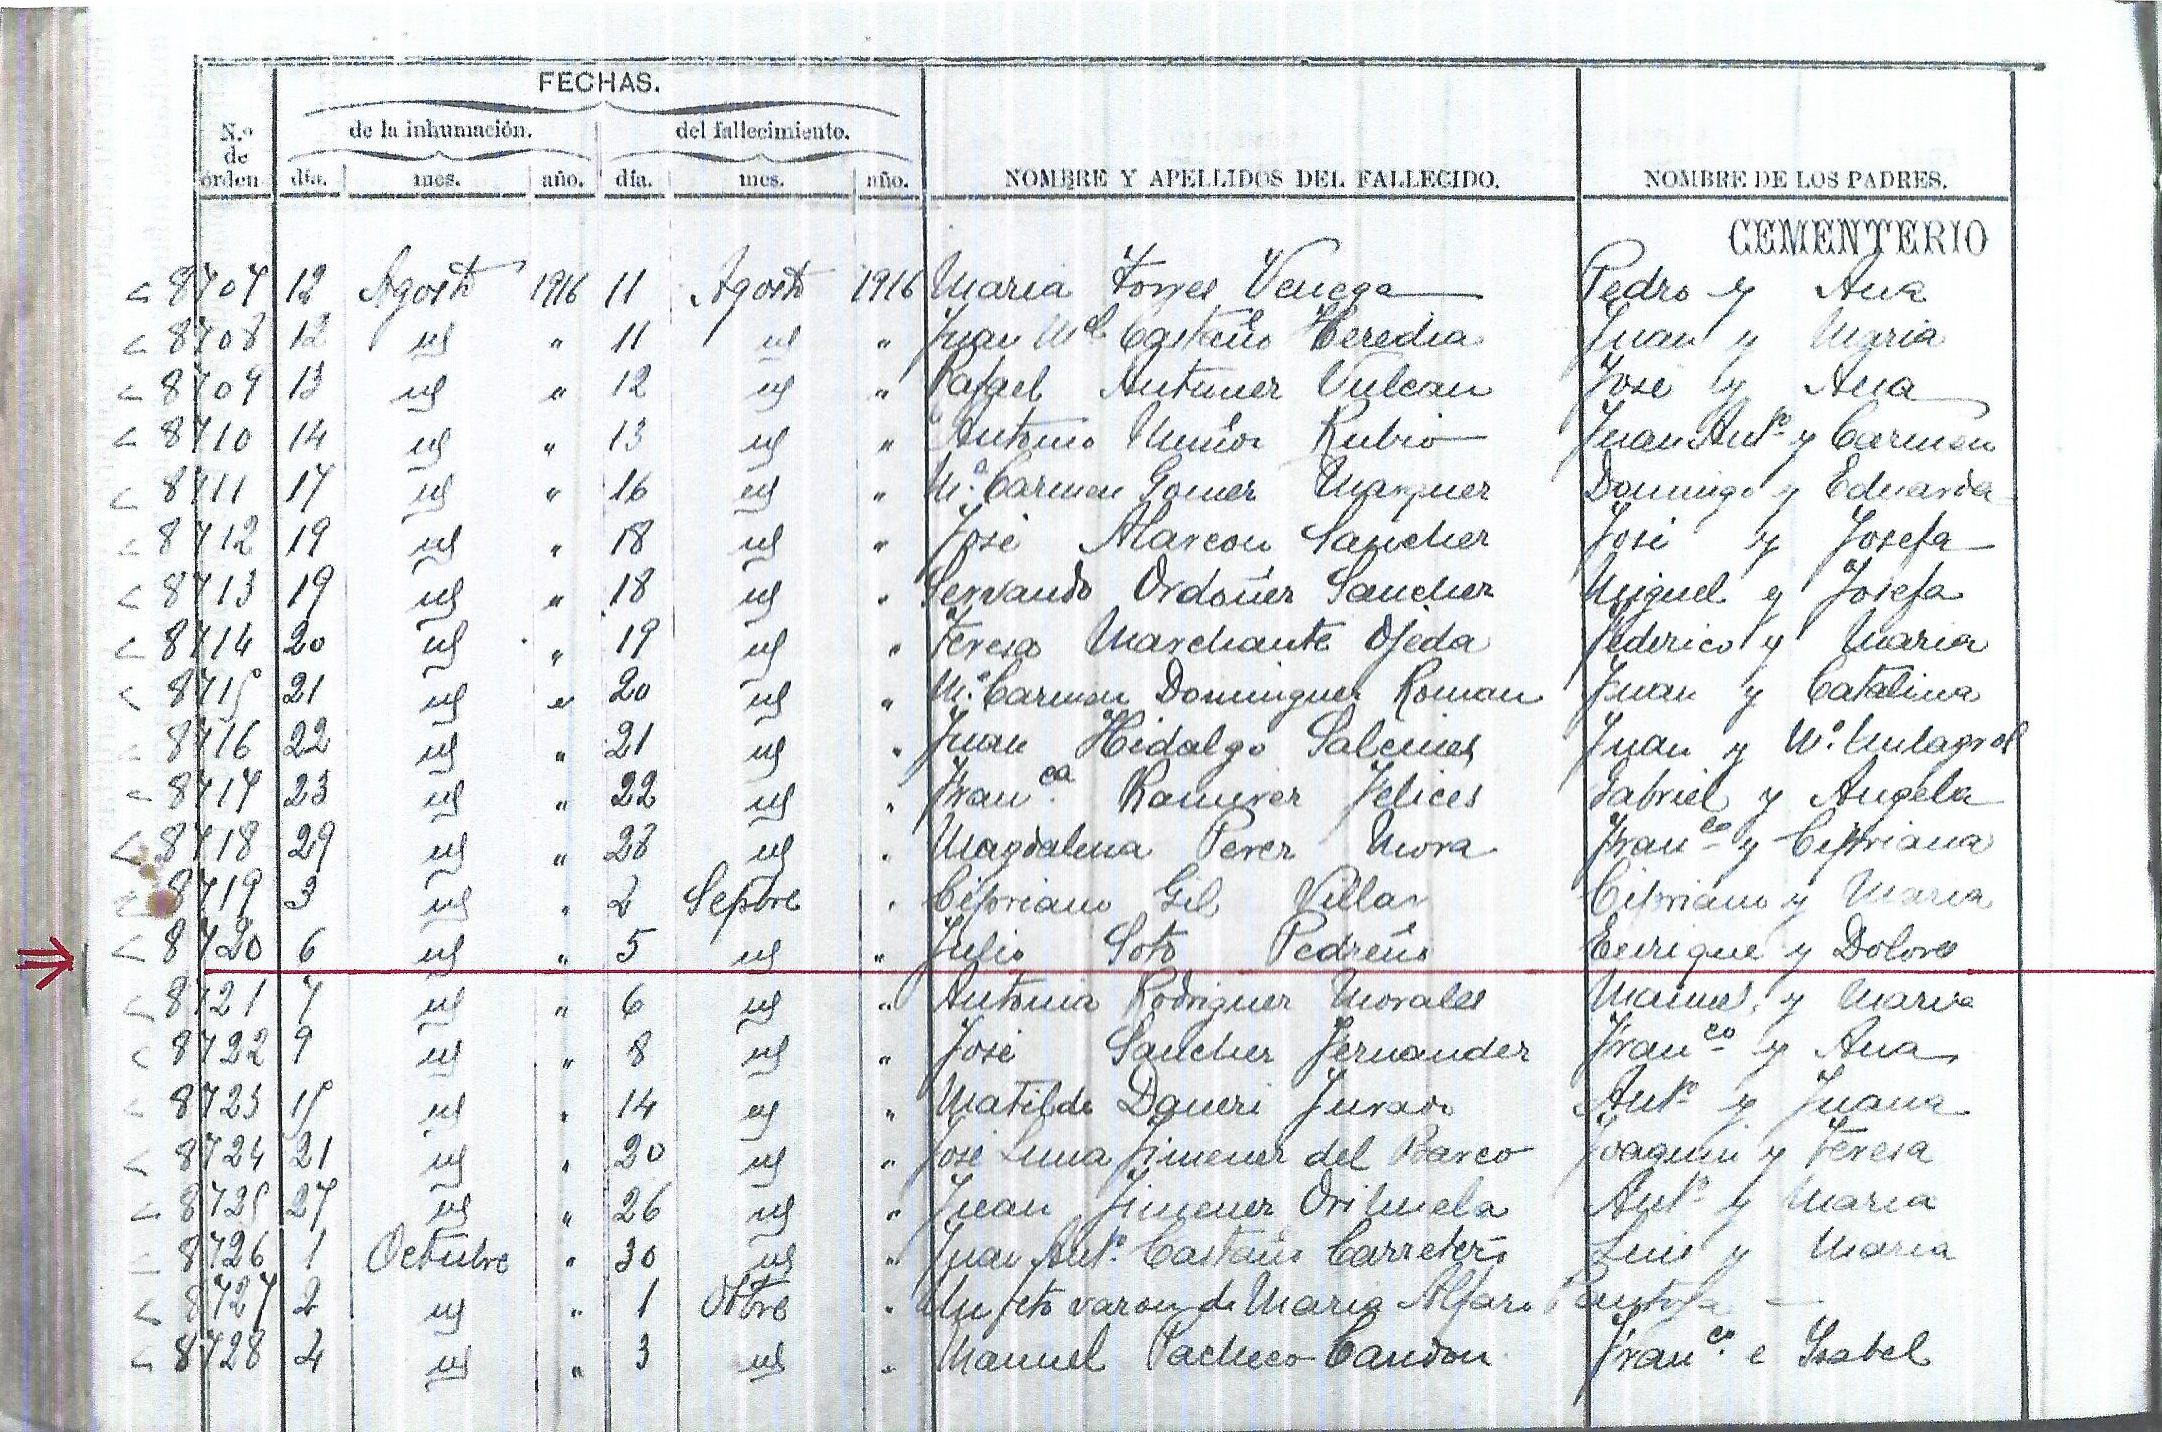 FECHAS.
de la inhumación. del fallecimiento.
N.o de órden día. mes. año. día. mes. año. NOMBRE Y APELLIDOS DEL FALLECIDO. NOMBRE DE LOS PADRES.
CEMENTERIO
8707 12 Agosto 1916 11 Agosto 1916 Maria Torres Venega Pedro y Ana
8708 12 id " 11 id " Juan Ml Castaño Heredia Juan y Maria
8709 13 id " 12 id " Rafael Antunez Vulcan José y Ana
8710 14 id " 13 id " Antonio Muñoz Rubio Juan Anto y Carmen
8711 17 id " 16 id " Ma Carmen Gomez Marquez Domingo y Eduarda
8712 19 id " 18 id " José Alarcon Sanchez José y Josefa
8713 19 id " 18 id " Servando Ordoñez Sanchez Miguel y Josefa
8714 20 id " 19 id " Teresa Marchante Ojeda Federico y Maria
8715 21 id " 20 id " Ma Carmen Dominguez Roman Juan y Catalina
8716 22 id " 21 id " Juan Hidalgo Juan y Ma Milagros
8717 23 id " 22 id " Franca Ramirez Felices Gabriel y Angela
8718 29 id " 28 id " Magdalena Perez Mora Franco y Cipriana
8719 3 id " 2 Sepbre " Cipriano Gil Villar Cipriano y Maria
8720 6 id " 5 id " Julio Soto Pedreño Enrique y Dolores
8721 7 id " 6 id " Antonia Rodriguez Morales Manuel y Maria
8722 9 id " 8 id " José Sanchez Fernandez Franco y Ana
8723 15 id " 14 id " Matilde Daneri Jurado Anto y Juana
8724 21 id " 20 id " José Luna Jimenez del Barco Joaquin y Teresa
8725 27 id " 26 id " Juan Jimenez Orihuela Anto y Maria
8726 1 Octubre " 30 id " Juan Anto Castaño Carretero Luis y Maria
8727 2 id " 1 Otbre " Un feto varon de Maria Alfaro Pantoja —
8728 4 id " 3 id " Manuel Pacheco Candon Franco e Isabel